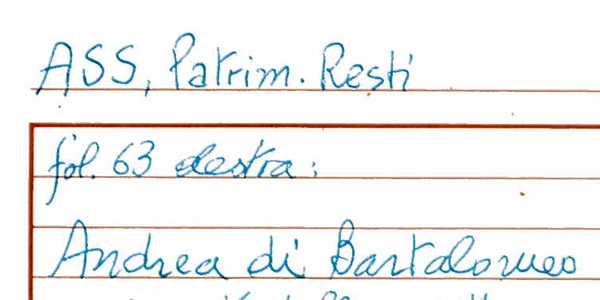 ASS, Patrim. Resti
fol. 63 destra:
Andrea di Bartalomeo